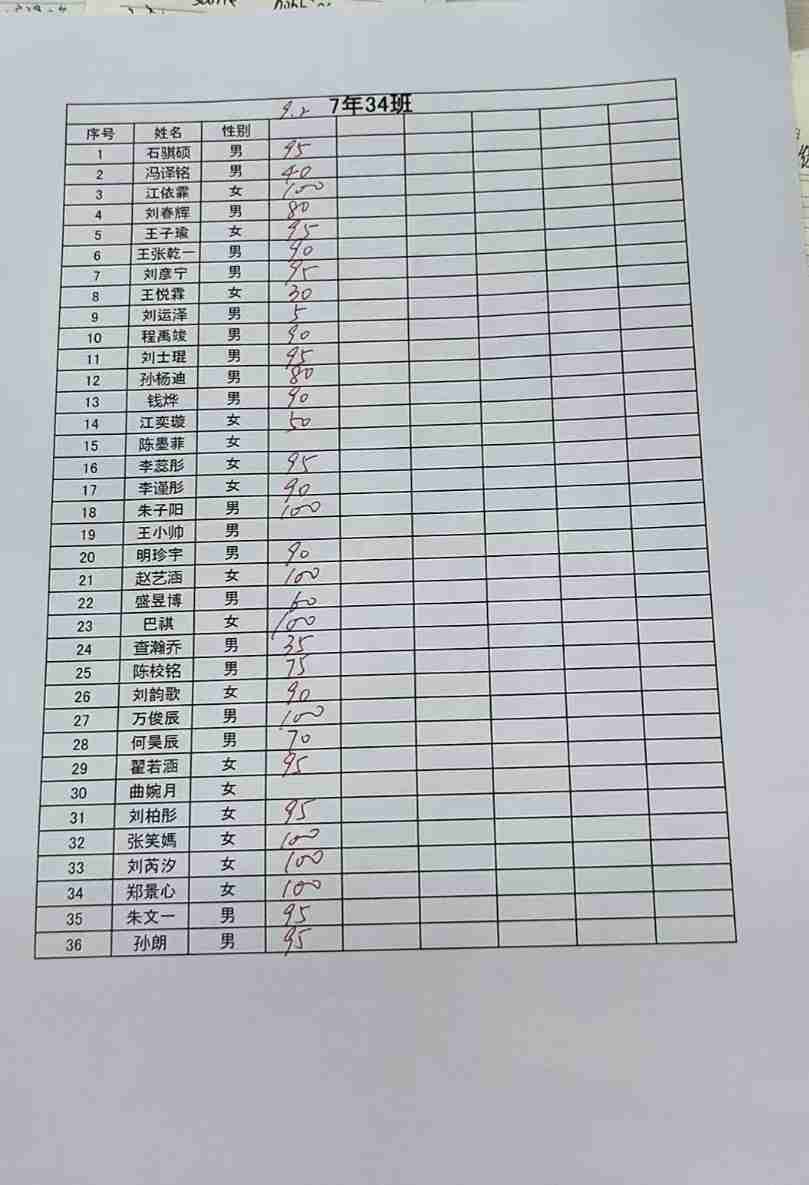 9.2 7年34班
序号 姓名 性别
1 石骐硕 男 95
2 冯译铭 男 40
3 江依霏 女 100
4 刘春辉 男 80
5 王子瑜 女 95
6 王张乾一 男 90
7 刘彦宁 男 95
8 王悦霖 女 30
9 刘运泽 男 5
10 程禹竣 男 90
11 刘士琨 男 95
12 孙杨迪 男 80
13 钱烨 男 90
14 江奕璇 女 50
15 陈墨菲 女
16 李蕊彤 女 95
17 李谨彤 女 90
18 朱子阳 男 100
19 王小帅 男
20 明珍宇 男 90
21 赵艺涵 女 100
22 盛昱博 男 60
23 巴祺 女 100
24 查瀚乔 男 35
25 陈校铭 男 75
26 刘韵歌 女 90
27 万俊辰 男 100
28 何昊辰 男 70
29 翟若涵 女 95
30 曲婉月 女
31 刘柏彤 女 95
32 张笑嫣 女 100
33 刘芮汐 女 100
34 郑景心 女 100
35 朱文一 男 95
36 孙朗 男 95